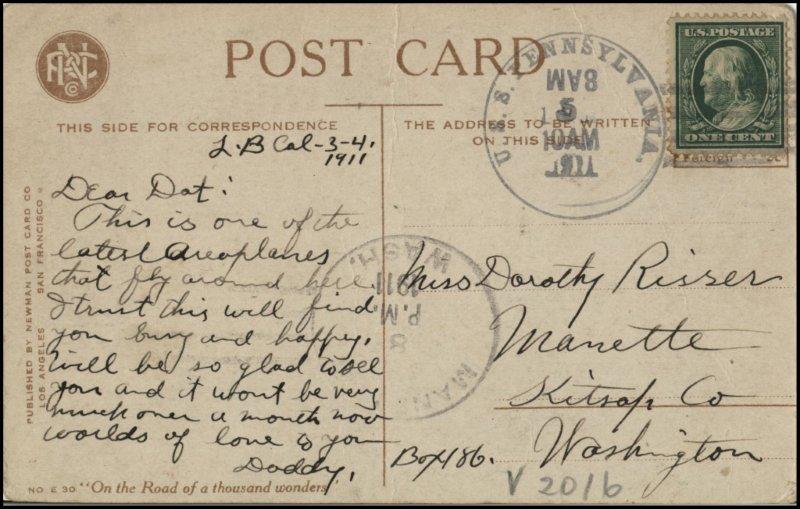 POST CARD
THIS SIDE FOR CORRESPONDENCE
THE ADDRESS TO BE WRITTEN
ON THIS SIDE
L.B Cal-3-4.
1911
Dear Dot:
This is one of the
latest Areoplanes
that fly around here.
I trust this will find
you busy and happy.
Will be so glad to see
you and it wont be very
much over a month now
worlds of love to you
Daddy,
NO E 30 "On the Road of a thousand wonders"
PUBLISHED BY NEWMAN POST CARD CO
LOS ANGELES SAN FRANCISCO
U.S.S. PENNSYLVANIA.
8AM
5
U.S. POSTAGE
ONE CENT
WASH.
1911
P.M.
8
MAN
Miss Dorothy Risser
Manette
Kitsap Co
Washington
Box 186.
V 2016